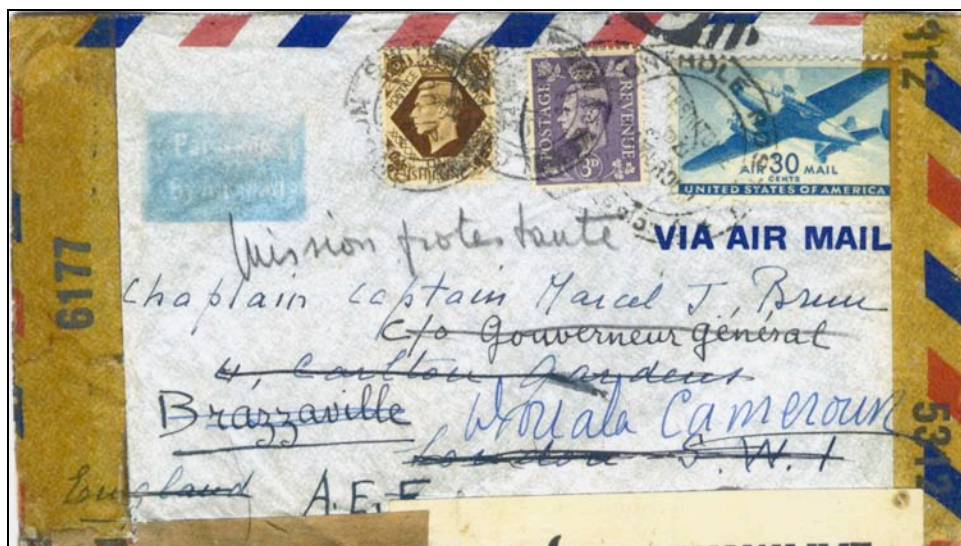 POSTAGE REVENUE
3D
AIR 30 MAIL
CENTS
UNITED STATES OF AMERICA
Par avion
VIA AIR MAIL
6177
5342
Mission protestante
Chaplain Captain Marcel J. Brun
c/o Gouverneur général
4, Carlton Gardens
Brazzaville Douala Cameroun
London S.W.1
England A.E.F